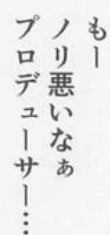 もー
ノリ悪いなぁ
プロデューサー…